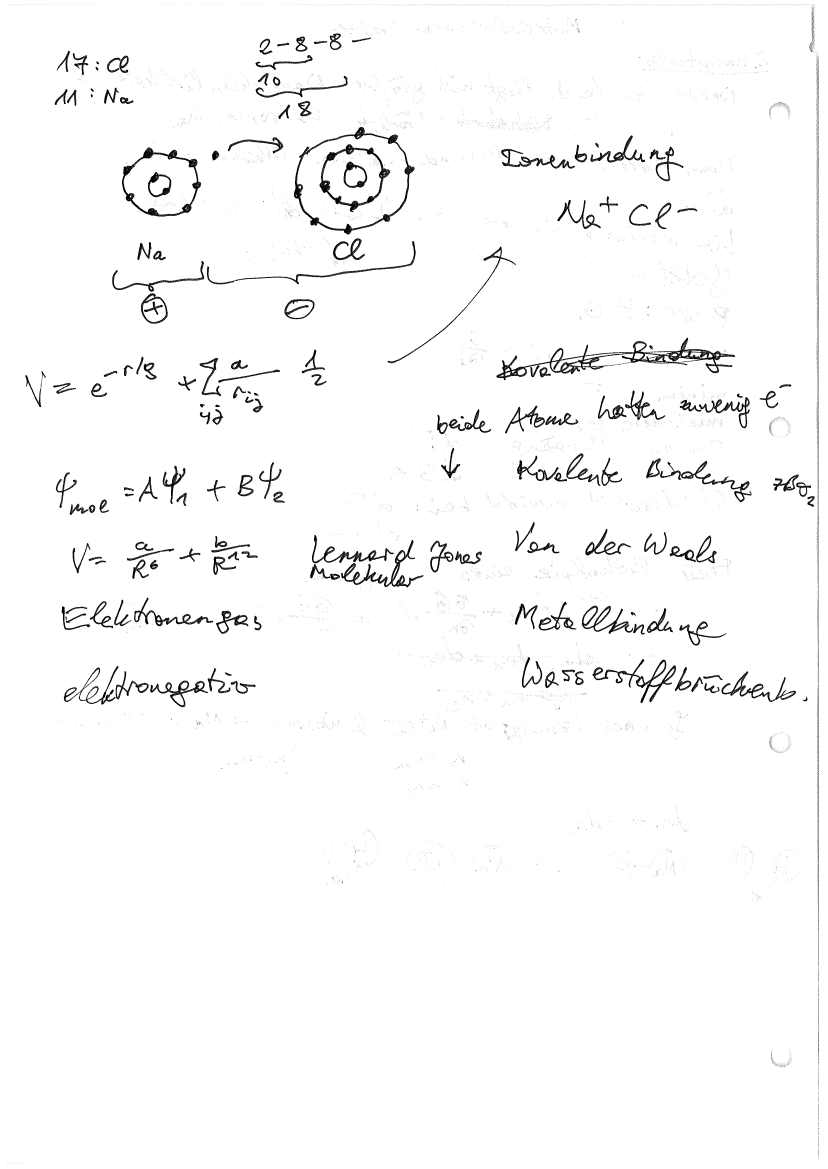 17: Cl
11: Na
2-8-8-
10
18
Ionenbindung
Na⁺ Cl⁻
Na
Cl
+
−
V = e^(-r/ς) + Σ_ij a/r_ij 1/2
Kovalente Bindung
beide Atome hatten zuwenig e⁻
↓ Kovalente Bindung
ψ_mol = Aψ₁ + Bψ₂
V = a/R⁶ + b/R¹² Lennard Jones Van der Waals
Molekular
Elektronengas Metallbindung
elektronegativ Wasserstoffbrückenb.